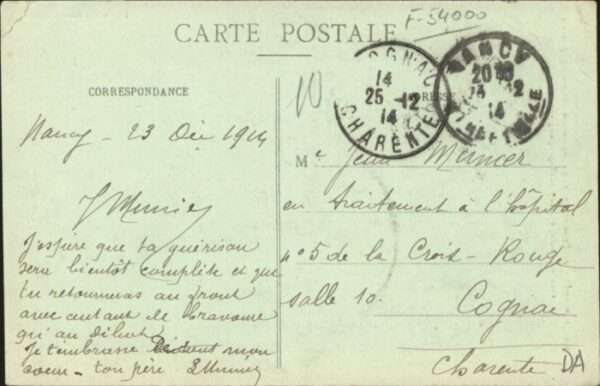 F-54000
CARTE POSTALE
COGNAC
14
25 -12
14
CHARENTE
NANCY
20
14
CORRESPONDANCE
10
Nancy - 23 Déc 1914
J'espère que ta guérison
sera bientôt complète et que
tu retourneras au front
avec autant de bravoure
qu'au début
Je t'embrasse de tout mon
coeur - ton père
Mr Jean
en traitement à l'hôpital
n° 5 de la Croix-Rouge
salle 10.
Cognac
Charente
DA